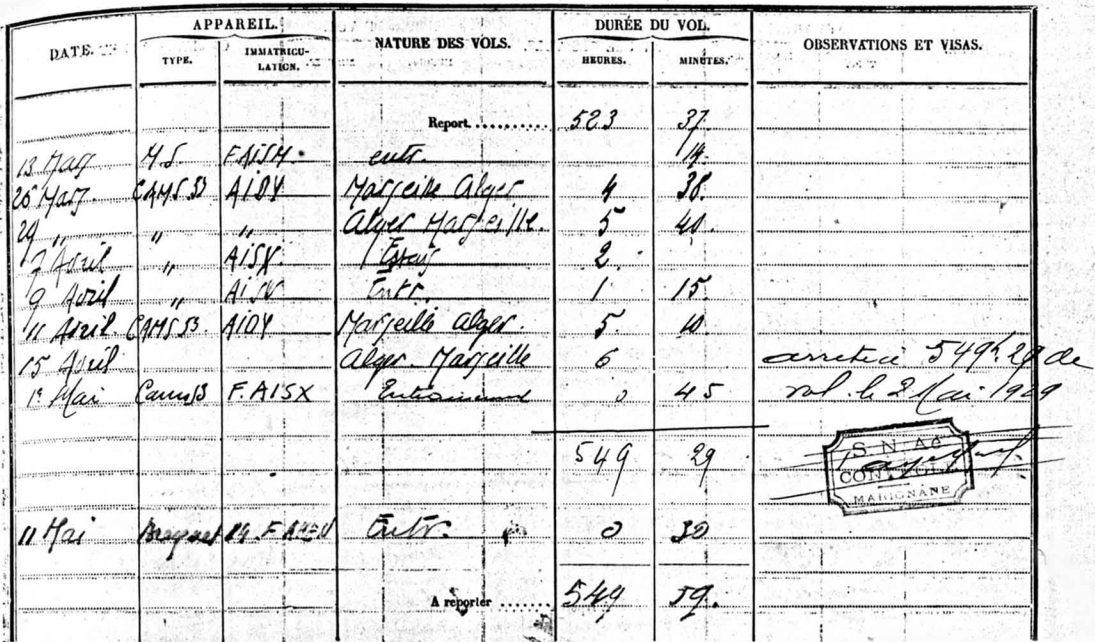 DATE. APPAREIL. NATURE DES VOLS. DURÉE DU VOL. OBSERVATIONS ET VISAS.
TYPE. IMMATRICU-LATION. HEURES. MINUTES.
Report.......... 523 37
13 Mars M.S FAISH entr. 14
26 Mars CAMS 53 AIDY Marseille Alger 4 38
29 " " " Alger Marseille. 5 40
7 Avril " AISX 1 Essais 2
9 Avril " AISX Entr. 1 15
11 Avril CAMS 53 AIDY Marseille Alger. 5 10
15 Avril Alger Marseille 6 arrêté à 549h 29 de
1er Mai Cams 53 F.AISX Entrainement 0 45 vol le 2 Mai 1929
549 29 S. N. Aé
CONTROLE
MARIGNANE
11 Mai Breguet 14 Entr. 0 30
A reporter ...... 549 59.